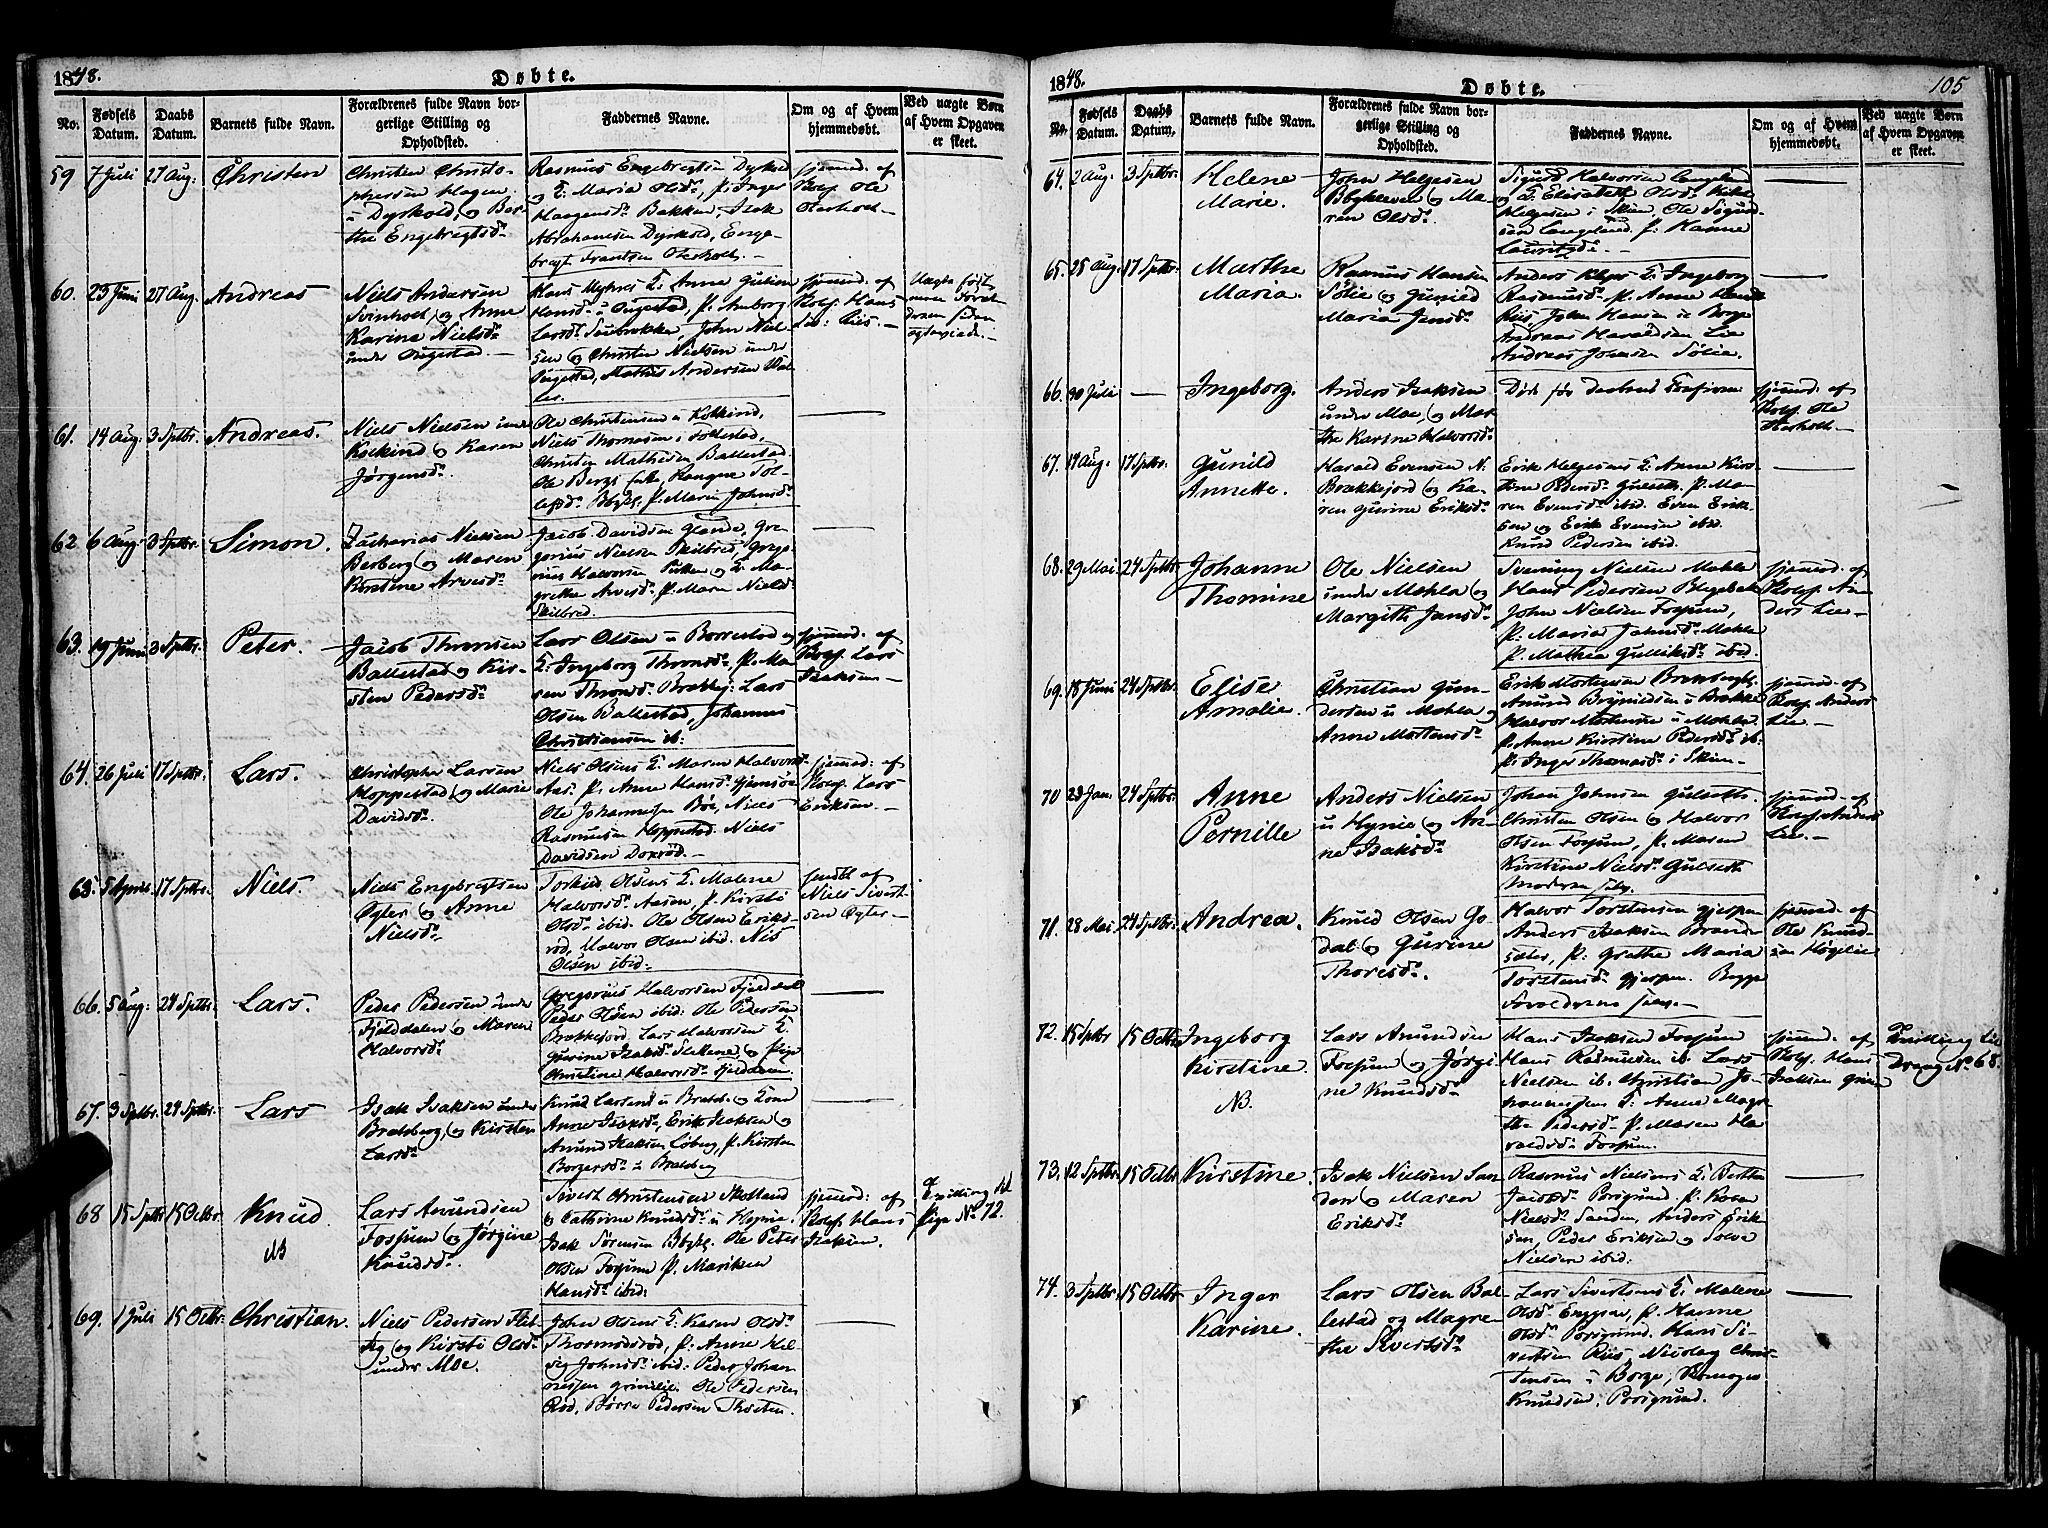 1848.
Døbte.
No.
Fødsels Datum.
Daabs Datum.
Barnets fulde Navn.
Forældrenes fulde Navn bor-
gerlige Stilling og
Opholdsted.
Faddernes Navne.
Om og af Hvem
hjemmedøbt.
Ved uægte Børn
af Hvem Opgaven
er skeet.
59 7 Juli 27 Aug. Christen
Christen Christo-
phersen Hagen
u Dyrkold, og Ber-
the Engebregtsd.
Rasmus Engebregtsen Dyrkold
og Maria Olsd. p. Inger
Haagensd. Bakken, Isak
Abrahamsen Dyrkold, Enge-
bregt Frantsen Østerholt.
hjemd. af
Kolf. Ole
Østerholt
60. 23 Juni 27 Aug. Andreas
Niels Andersen
Svinholt og Anne
Karine Nielsd.
under
Hans Myhres K. Anne Gulien
Hansd. p. Anborg
Larsd. John Niel-
sen og Christen Nielsen under
Mathis Andersen
hjemd. af
Kolf. Hans
Uægte født
men Foræl-
drene siden
egteviede.
61. 14 Aug. 3 Sptbr. Andreas.
Niels Nielsen under
og Karen
Jørgensd.
Ole Christensen u
Niels Thomesen i Follestad,
Christen Mathisen Ballestad
Ole Bergs
p. Maria Johnsd.
62 6 Aug 3 Sptbr. Simon.
Zacharias Nielsen
Berberg og Maren
Kirstine Arvesd.
Jacob Davidsen Glende, Gre-
gorius Nielsen Skilbred, Grego-
rius Halvorsen og Ma-
grethe Arvesd. p. Maren Nielsd.
Skilbred.
63. 19 Juni 3 Sptbr. Peter.
Jacob Thronsen
Ballestad og Kir-
sten Pedersd.
Lars Olsen u Borrestad og
K. Ingeborg Thronsd. p. Ma-
ren Thronsd. Brekkej: Lars
Olsen Ballestad, Johannes
Christiansen ib:
hjemd. af
Kolf. Lars
Isaksen
64. 26 Juli 17 Sptbr. Lars.
Christopher Larsen
Hoppestad og Marie
Davidsd.
Niels Olsens K. Maren Halvorsd.
Aas. p. Anne Hansd.
Ole Johannesen Bøe, Niels
Rasmusen Hoppestad Niels
Davidsen
hjemd. af
Kolf. Lars
Eriksen
65. 5 April 17 Sptbr. Niels.
Niels Engebregtsen
Øyter og Anne
Nielsd.
Torkild Olsens K. Malene
Halvorsd. Aasen, p. Kirsti
Olsd. ibid. Ole Olsen Eriks-
rød, Halvor Olsen ibid. Nis
Olsen ibid.
hjmdbt af
Niels Sivert-
sen Øyter
66. 5 Aug: 24 Sptbr. Lars.
Peder Pedersen under
Fjelddalen og Maren
Halvorsd.
Gregorius Halvorsen Fjelddal
Peder Olsen ibid: Ole Pedersen
Brekkejord Lars Halvorsen K.
Gurine Isaksd. og Pige
Christine Halvorsd. Fjeldalen.
67. 3 Sptbr. 24 Sptbr. Lars
Isak Isaksen under
Bratsberg, og Kirsten
Larsd.
Knud Larsen u Bratsb. og Kone
Anne Isaksd. Erik Isaksen og
Amund Isaksen Løberg p. Kirsten
Borgersd. u Bratsberg
68 15 Sptbr 15 Octbr. Knud
NB
Lars Amundsen
Fossum og Jørgine
Knudsd.
Sivert Christensen Skotland
og Cathrine Knudsd. u Hynie.
Isak Sørensen Ole Peter
Olsen Fossum p. Mariken
Hansd. ibid:
hjemd. af
Kolf. Hans
Isaksen.
Tvilling til
Pige No 72.
69. 1 Juli 15 Octbr. Christian.
Niels Pedersen
og Kirsti Olsd.
under Moe.
John Olsens K. Karen Olsd.
Thormodsrød, p. Anne Hel-
vig Johnsd. ibid: Peder Johan-
nessen Grinilie Ole Pedersen
Rød, Børre Pedersen
1848.
Døbte.
105
No.
Fødsels Datum.
Daabs Datum.
Barnets fulde Navn.
Forældrenes fulde Navn bor-
gerlige Stilling og
Opholdsted.
Faddernes Navne.
Om og af Hvem
hjemmedøbt.
Ved uægte Børn
af Hvem Opgaven
er skeet.
64. 2 Aug. 3 Sptbr. Helene
Marie.
John Helgesen
og Ma-
ren Olsd.
Sigurd Halvorsen Langeland
og K. Elisabeth Olsd.
Helgesen i Skien, Ole Sigurd-
sen Langeland. p: Hanne
Lauritsd.
65. 25 Aug. 17 Sptbr: Marthe
Maria.
Rasmus Hansen
Sølie og Gunild
Maria Jensd.
Anders K. Ingeborg
Rasmusd. p. Anne
Riis, John Hansen u Borge
Andreas Haraldsen Lie
Andreas Johnsen Sølie.
66. 30 Juli — Ingeborg.
Anders Isaksen
under Moe, og Mar-
the Karine Halvorsd.
Døde før Daabens
hjemd. af
Kolf. Ole
Østerholt
67. 19 Aug. 17 Sptbr. Gunild
Annette.
Harald Evensen N.
Brekkejord og Ka-
ren Gurine Eriksd.
Erik Helgesens K. Anne Kirs-
tine Pedersd. Gulseth. p. Ma-
ren Evensd. ibid. Even Erik-
sen og Erik Evensen ibid.
Knud Pedersen ibid.
68. 29 Mai 24 Sptbr. Johanne
Thomine
Ole Nielsen
under Mæhla og
Margith Jansd.
Svenung Nielsen Mæhla
Hans Pedersen
John Nielsen Fossum,
p. Maria Johnsd. Mæhla
p. Mathea Gulliksd. ibid.
hjemd. af
Kolf. An-
ders Lie
69. 18 Juni 24 Sptbr. Elise
Amalie.
Christian Gun-
dersen u Mæhla og
Anne Mortensd.
Erik Mortensen
Amund Brynildsen u Brekke
Halvor Mortensen u Mæhla
p. Anne Kirstine Pedersd. ib.
p. Inger Thomasd. i Skien
hjemd. af
Kolf. Anders
Lie
70 23 Jan. 24 Sptbr. Anne
Pernille
Anders Nielsen
u Hynie og An-
ne Isaksd.
Johan Johnsen Gulseth.
Christen Olsen og Halvor
Olsen Fossum, p. Maren
Kirstine Nielsd. Gulseth
Moderen selv.
hjemd. af
Kolf. Anders
Lie.
71. 28 Mai. 24 Sptbr: Andrea.
Knud Olsen Go-
dal og Gurine
Thoresd.
Halvor Torstensen Gjerpen
Anders Isaksen Brand-
sæter, p. Grethe Maria
Torstensd. Gjerpen. Begge
Forældrene selv.
hjemd. af
Ole Knud-
sen Høgelie
72. 15 Sptbr 15 Octbr Ingeborg
Kirstine.
NB.
Lars Amundsen
Fossum og Jørgi-
ne Knudsd.
Hans Isaksen Fossum
Hans Rasmusen ib. Lars
Nielsen ib. Christian Jo-
hannessens K. Anne Magre-
the Pedersd. p. Maren Ha-
raldsd. Fossum.
hjemd. af
Kolf. Hans
Isaksen
Tvilling til
Dreng No 68.
73. 12 Sptbr. 15 Octbr Kirstine.
Isak Nielsen San-
den og Maren
Eriksd.
Rasmus Nielsens K. Berthe
Jacobsd. Porsgrund. p. Karen
Nielsd. Sanden, Anders Erik-
sen, Peder Eriksen og
Nielsen ibid:
74. 3 Sptbr. 15 Octbr Inger
Karine.
Lars Olsen Bal-
lestad og Magre-
the Sivertsd.
Lars Sivertsens K. Malene
Olsd. p. Hanne
Olsd. Porsgrund. Hans Si-
vertsen Riis, Nicolay Chris-
tensen i Borge,
Knudsen, Porsgrund.